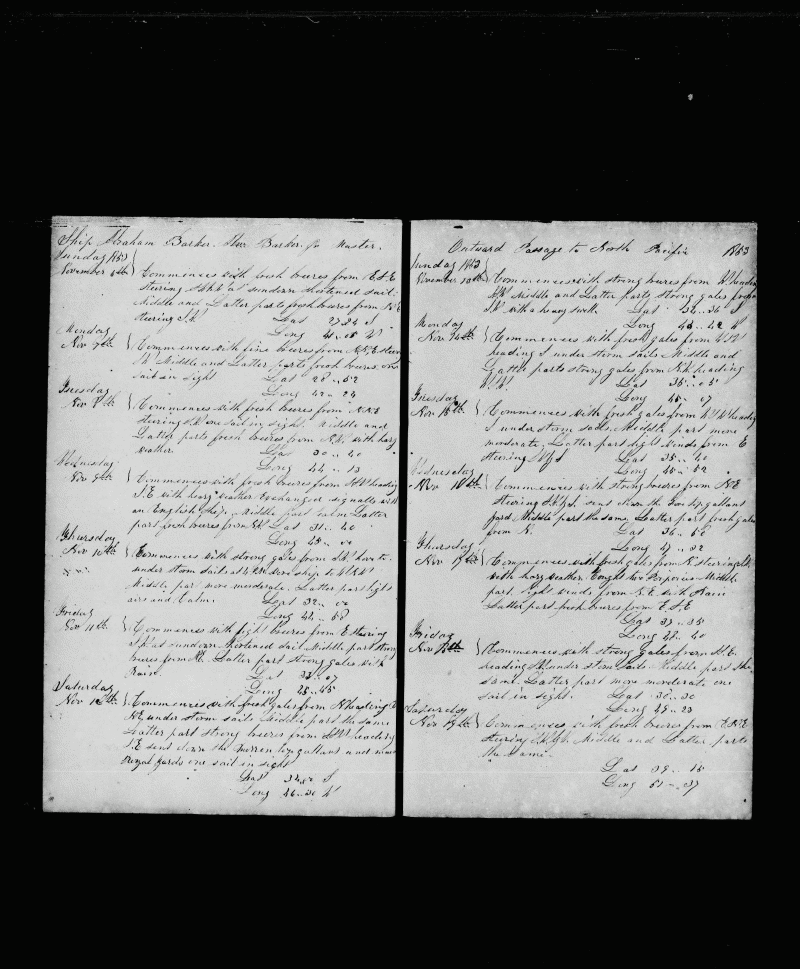 Ship Abraham Barker. Barker Jr Master.
Sunday 1863
November 6th } Commences with fresh breezes from E.S.E
Steering at sundown shortened sail.
Middle and Latter parts fresh breezes from N.E
Steering S.W. Lat S
Long W
Monday
Nov 7th } Commences with fine breezes from N.N.E Steering
Middle and Latter parts fresh breezes. one
sail in sight Lat 28 .. 52
Long 42 .. 24
Tuesday
Nov 8th } Commences with fresh breezes from N.N.E
Steering S.W. one sail in sight. Middle and
Latter parts fresh breezes from N.W. with hazy
weather. Lat 30 .. 40
Long 44 .. 13
Wednesday
Nov 9th } Commences with fresh breezes from heading
S.E. with hazy weather Exchanged signals with
an English Ship. Middle part calm Latter
part fresh breezes from Lat 31 .. 40
Long 45 .. 00
Thursday
Nov 10th } Commences with strong gales from S.W. hove to
under storm sails at wore ship to
Middle part more moderate. Latter part light
airs and Calm. Lat 32 .. 00
Long
Friday
Nov 11th } Commences with light breezes from E Steering
S.W. at sundown shortened sail Middle part strong
breezes from Latter part strong gales with
Rain. Lat
Long 45 .. 45
Saturday
Nov 12th } Commences with fresh gales from heading
under storm sails Middle part the same
Latter part strong breezes from heading
S.E sent down the mizzen topgallant and main
royal yards one sail in sight
Lat S
Long 46 .. 30 W
Outward Passage to North Pacific 1863
Sunday 1863
November 13th } Commences with strong breezes from heading
Middle and Latter parts strong gales from
S.W. with a heavy swell Lat 34 .. 36 S
Long W
Monday
Nov 14th } Commences with fresh gales from
heading S under storm sails Middle and
Latter parts strong gales from heading
Lat 35 .. 05
Long 45 .. 07
Tuesday
Nov 15th } Commences with fresh gales from heading
S under storm sails. Middle part more
moderate. Latter part light winds from E
Steering Lat 35 .. 40
Long 45 .. 52
Wednesday
Nov 16th } Commences with strong breezes from N.E
Steering sent down the fore topgallant
yard. Middle part the same. Latter part fresh gales
from N. Lat 36 .. 50
Long 47 .. 32
Thursday
Nov 17th } Commences with fresh gales from N. Steering
with hazy weather. Caught two Porpoises Middle
part. light winds from N.E. with Rain
Latter part fresh breezes from E.S.E
Lat 37 .. 35
Long 47 .. 40
Friday
Nov 18th } Commences with strong gales from S.E.
heading under storm sails. Middle part the
same. Latter part more moderate one
sail in sight. Lat 38 .. 30
Long 49 .. 23
Saturday
Nov 19th } Commences with fresh breezes from E.N.E
Steering Middle and Latter parts
the same.
Lat 39 .. 15
Long 51 .. 37